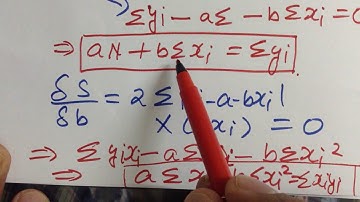 Σyi - aΣ - bΣxi = 0
⇒ aN + bΣxi = Σyi
δS/δb = 2 Σ i - a - bxi
× ( xi) = 0
⇒ Σ yixi - aΣ - bΣxi²
⇒ aΣx Σxi² = Σxiyi